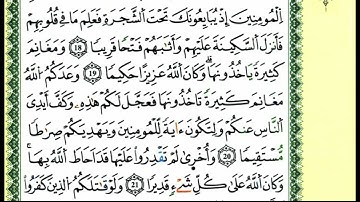 اِ۬لْمُومِنِينَ إِذْ يُبَايِعُونَكَ تَحْتَ اَ۬لشَّجَرَةِ فَعَلِمَ مَا فِے قُلُوبِهِمْ
فَأَنزَلَ اَ۬لسَّكِينَةَ عَلَيْهِمْ وَأَثَٰبَهُمْ فَتْحاٗ قَرِيباٗ 18 وَمَغَانِمَ
كَثِيرَةٗ يَاخُذُونَهَاۖ وَكَانَ اَ۬للَّهُ عَزِيزاً حَكِيماٗ 19 وَعَدَكُمُ اُ۬للَّهُ
مَغَانِمَ كَثِيرَةٗ تَاخُذُونَهَا فَعَجَّلَ لَكُمْ هَٰذِهِۦ وَكَفَّ أَيْدِيَ
اَ۬لنَّاسِ عَنكُمْ وَلِتَكُونَ ءَايَةٗ لِّلْمُومِنِينَ وَيَهْدِيَكُمْ صِرَٰطاٗ
مُّسْتَقِيماٗ 20 وَأُخْر۪يٰ لَمْ تَقْدِرُواْ عَلَيْهَا قَدَ اَحَاطَ اَ۬للَّهُ بِهَاۖ
وَكَانَ اَ۬للَّهُ عَلَىٰ كُلِّ شَےْءٖ قَدِيراٗ 21 وَلَوْ قَٰتَلَكُمُ اُ۬لذِينَ كَفَرُواْ